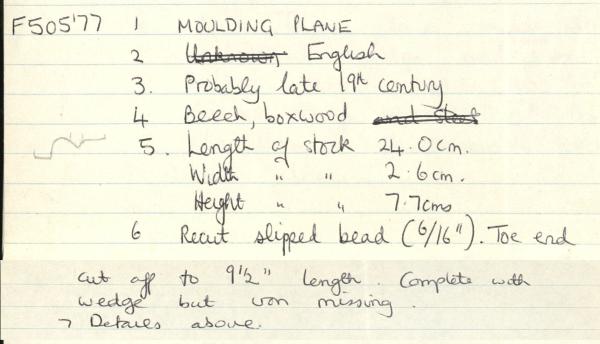 F505'77 1 MOULDING PLANE
2 Unknown, English
3. Probably late 19th century
4 Beech, boxwood and steel
5. Length of stock 24.0cm.
Width " " 2.6cm.
Height " " 7.7cms
6 Recut slipped bead (6/16"). Toe end
cut off to 9 1/2" length. Complete with
wedge but iron missing.
7 Details above.